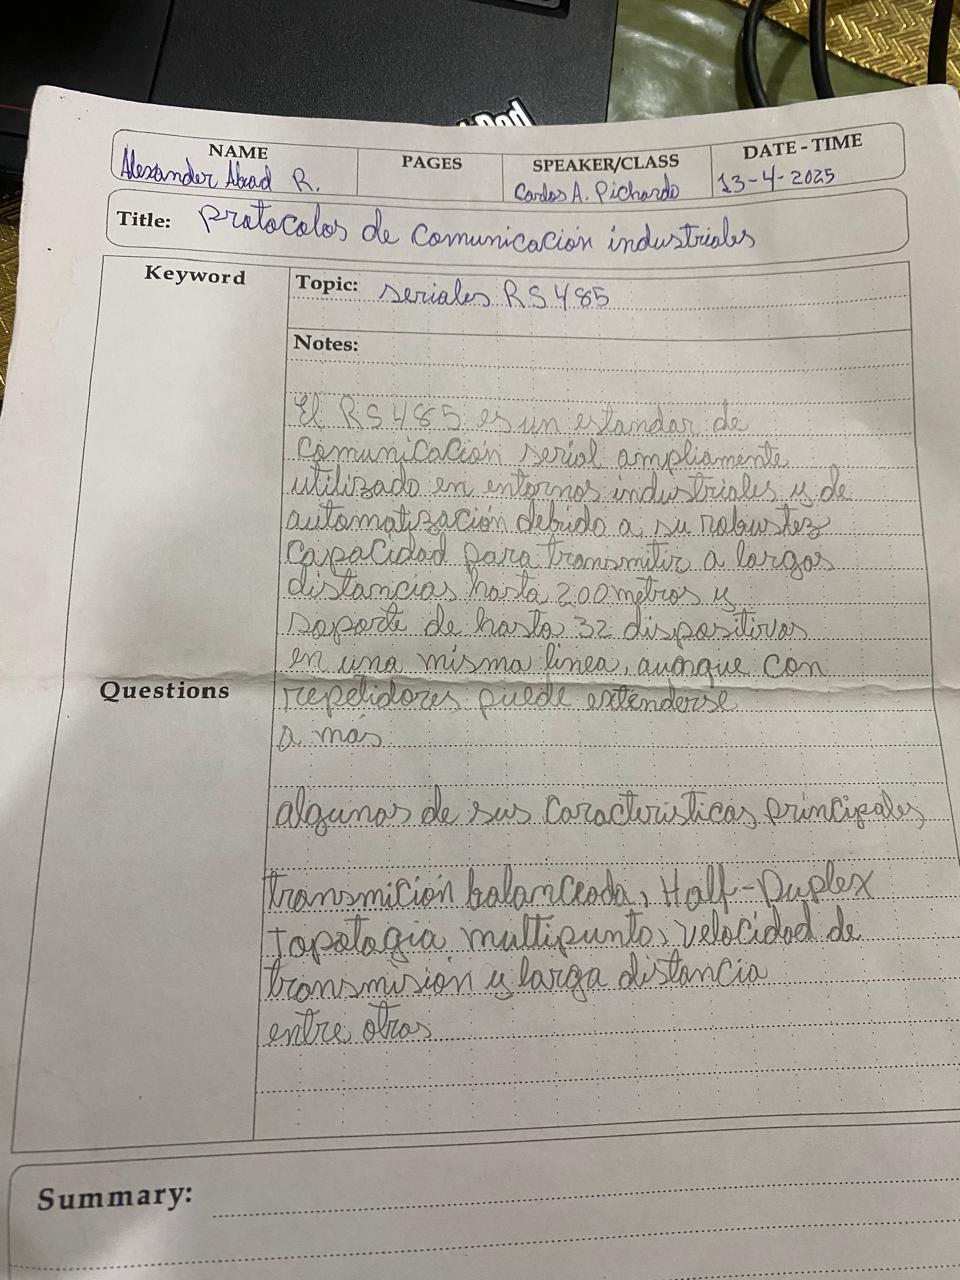 NAME
Alexander Abad R.
PAGES
SPEAKER/CLASS
Carlos A. Pichardo
DATE - TIME
13-4-2025
Title: Protocolos de comunicación industriales
Keyword
Topic: seriales RS485
Notes:
El RS485 es un estandar de
comunicación serial ampliamente
utilizado en entornos industriales y de
automatización debido a su robustez
capacidad para transmitir a largas
distancias hasta 200 metros y
soporte de hasta 32 dispositivos
en una misma linea, aunque con
repetidores puede extenderse
a más
Questions
algunas de sus caracteristicas principales
transmición balanceada, Half-Duplex
Topologia multipunto, velocidad de
transmisión y larga distancia
entre otras
Summary: